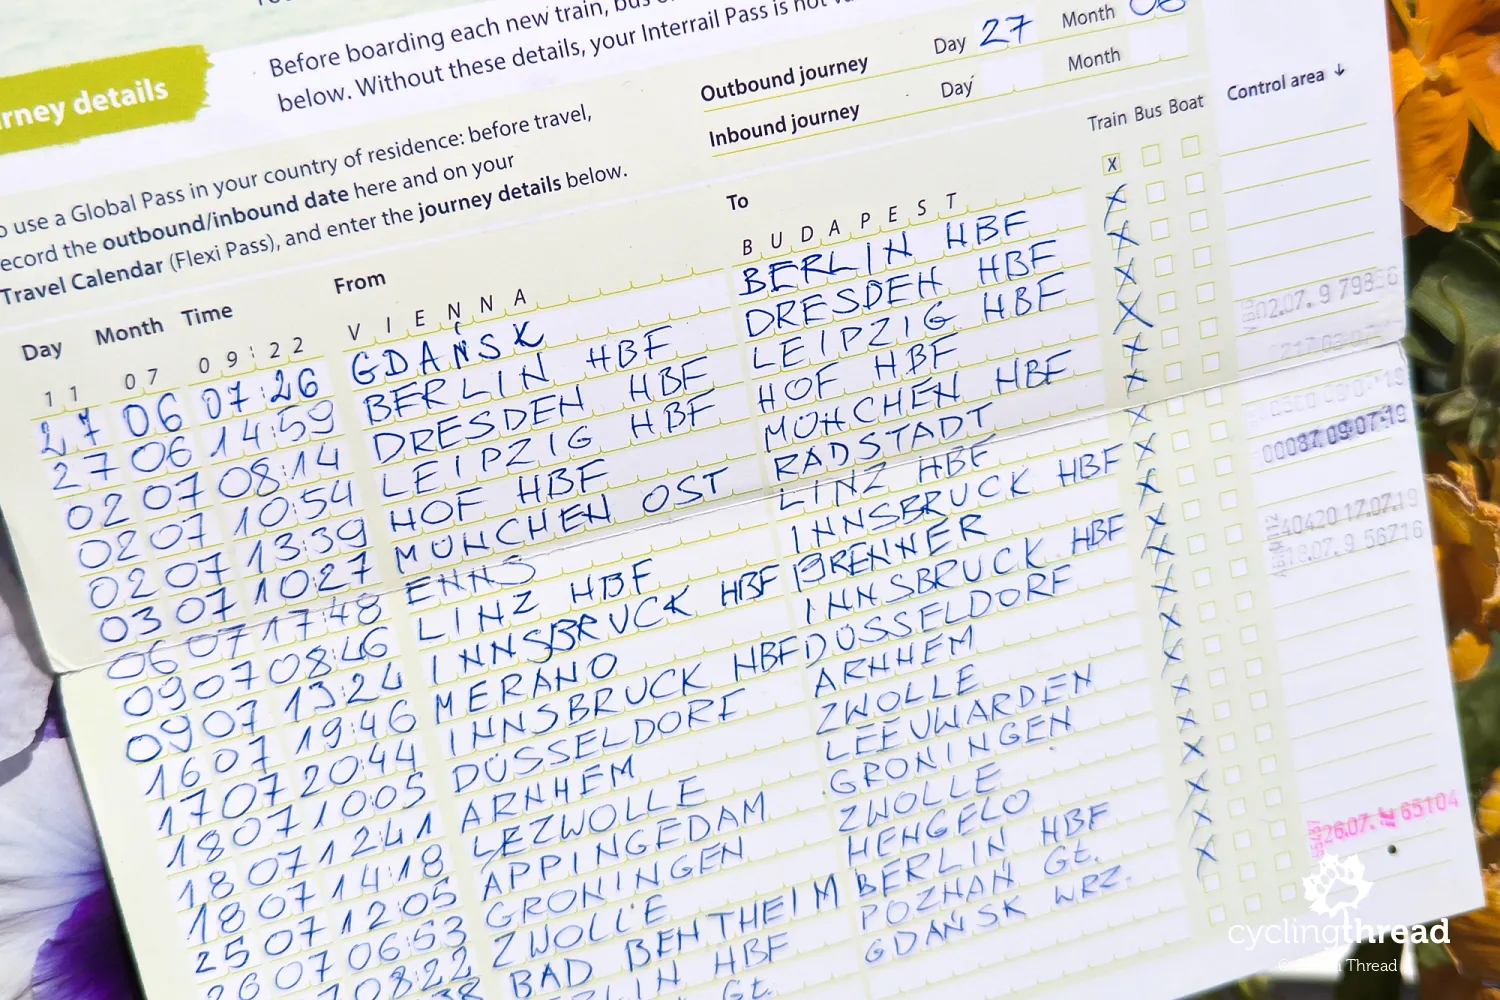 Before boarding each new train, bus
below. Without these details, your Interrail Pass is not
rney details
Outbound journey Day 27 Month
Inbound journey Day Month
use a Global Pass in your country of residence: before travel,
ecord the outbound/inbound date here and on your
Travel Calendar (Flexi Pass), and enter the journey details below.
Train Bus Boat Control area ↓
Day Month Time From To
11 07 09:22 VIENNA BUDAPEST x
27 06 07:26 GDAŃSK BERLIN HBF X
27 06 14:59 BERLIN HBF DRESDEN HBF X
02 07 08:14 DRESDEN HBF LEIPZIG HBF X
02 07 10:54 LEIPZIG HBF HOF HBF X
02 07 13:39 HOF HBF MÜNCHEN HBF X
03 07 10:27 MÜNCHEN OST RADSTADT X
06 07 17:48 ENNS LINZ HBF X
09 07 08:46 LINZ HBF INNSBRUCK HBF X
09 07 13:24 INNSBRUCK HBF BRENNER X
16 07 19:46 MERANO INNSBRUCK HBF X
17 07 20:44 INNSBRUCK HBF DÜSSELDORF X
18 07 10:05 DÜSSELDORF ARNHEM X
18 07 12:41 ARNHEM ZWOLLE X
18 07 14:18 ZWOLLE LEEUWARDEN X
25 07 12:05 APPINGEDAM GRONINGEN X
26 07 06:53 GRONINGEN ZWOLLE X
08:22 ZWOLLE HENGELO X
BAD BENTHEIM BERLIN HBF X
HBF POZNAŃ Gt. X
Gt. GDAŃSK WRZ.
00087.09·07·19
40420 17.07.19
18.07. 9 56716
26.07. 65104
cyclingthread
Thread